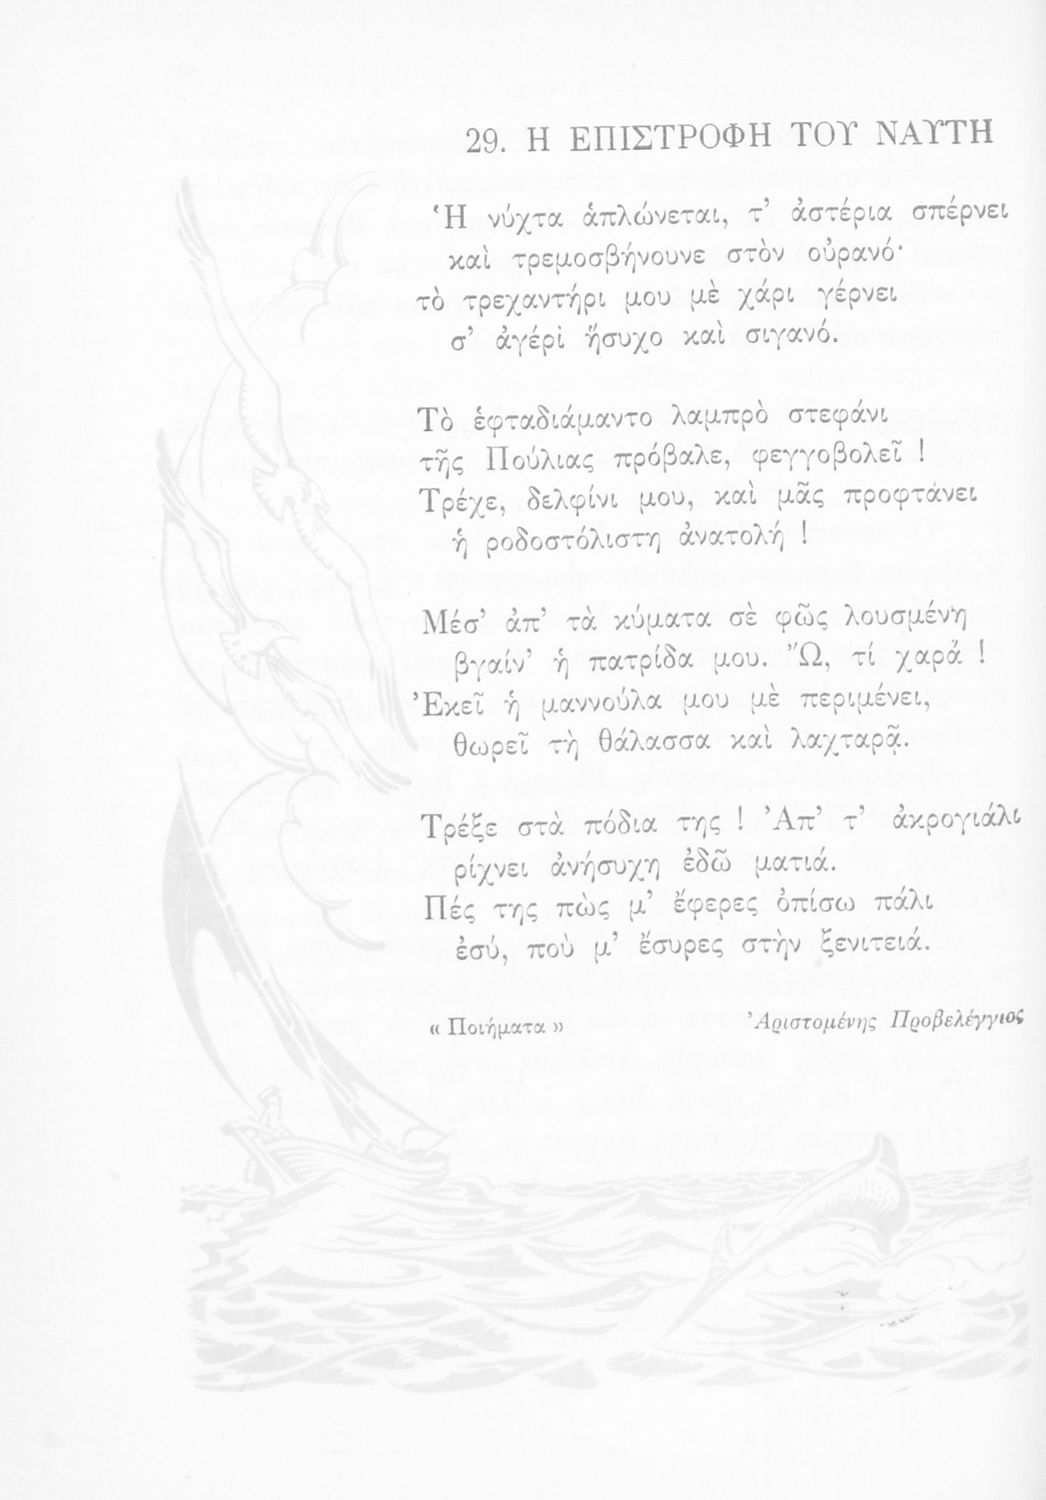 29. Η ΕΠΙΣΤΡΟΦΗ ΤΟΥ ΝΑΥΤΗ
Ἡ νύχτα ἁπλώνεται, τ’ ἀστέρια σπέρνει
καὶ τρεμοσβήνουνε στὸν οὐρανό·
τὸ τρεχαντήρι μου μὲ χάρι γέρνει
σ’ ἀγέρι ἥσυχο καὶ σιγανό.
Τὸ ἑφταδιάμαντο λαμπρὸ στεφάνι
τῆς Πούλιας πρόβαλε, φεγγοβολεῖ !
Τρέχε, δελφίνι μου, καὶ μᾶς προφτάνει
ἡ ροδοστόλιστη ἀνατολή !
Μέσ’ ἀπ’ τὰ κύματα σὲ φῶς λουσμένη
βγαίν’ ἡ πατρίδα μου. Ὤ, τί χαρὰ !
Ἐκεῖ ἡ μαννούλα μου μὲ περιμένει,
θωρεῖ τὴ θάλασσα καὶ λαχταρᾷ.
Τρέξε στὰ πόδια της ! Ἀπ’ τ’ ἀκρογιάλι
ρίχνει ἀνήσυχη ἐδῶ ματιά.
Πές της πὼς μ’ ἔφερες ὀπίσω πάλι
ἐσύ, ποὺ μ’ ἔσυρες στὴν ξενιτειά.
« Ποιήματα » Ἀριστομένης Προβελέγγιος